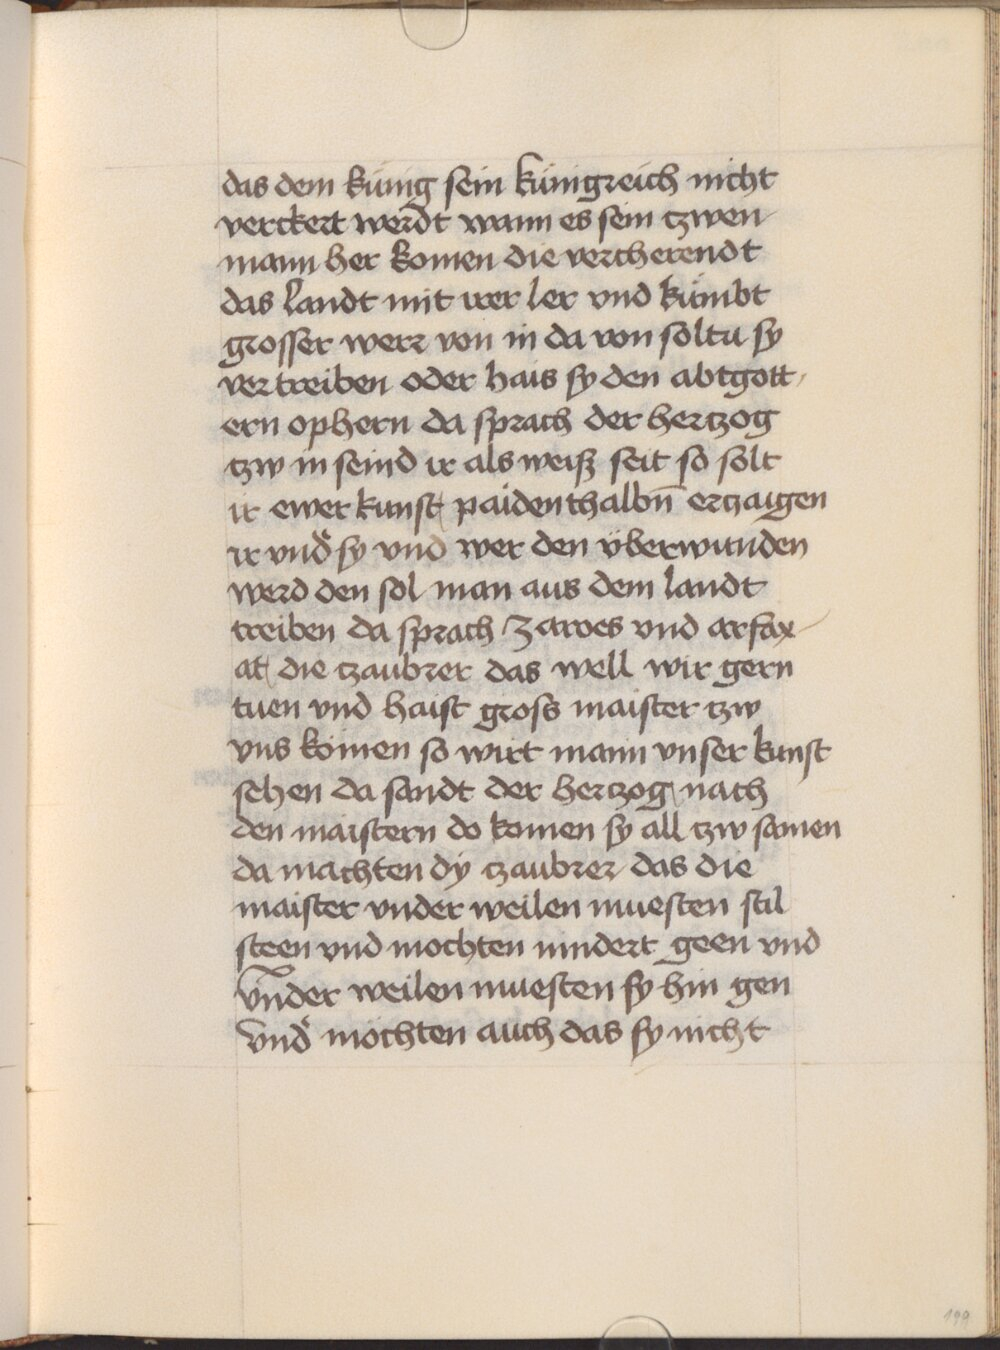 das dem künig sein künigreich nicht
verckert werdt wann es sein tzwen
mann her komen die vercherendt
das landt mit irer ler vnd kümbt
grosser werr von in da von soltu sy
vertreiben oder hais sy den abtgott
ern ophern da sprach der hertzog
tzw in seind ir als weiß seit so solt
ir ewer kunst paidenthalbn̄ ertzaigen
ir vnd sy vnd wer den vberwunden
werd den sol man aus dem landt
treiben da sprach Zaroes vnd arfax
at die tzaubrer das well wir gern
tuen vnd haist gross maister tzw
vns komen so wirt mann vnser kunst
sehen da sandt der hertzog nach
den maistern do komen sy all tzw samen
da machten dy tzaubrer das die
maister vnder weilen muesten stil
steen vnd mochten nindert geen vnd
vnder weilen muesten sy hin gen
vnd mochten auch das sy nicht
199